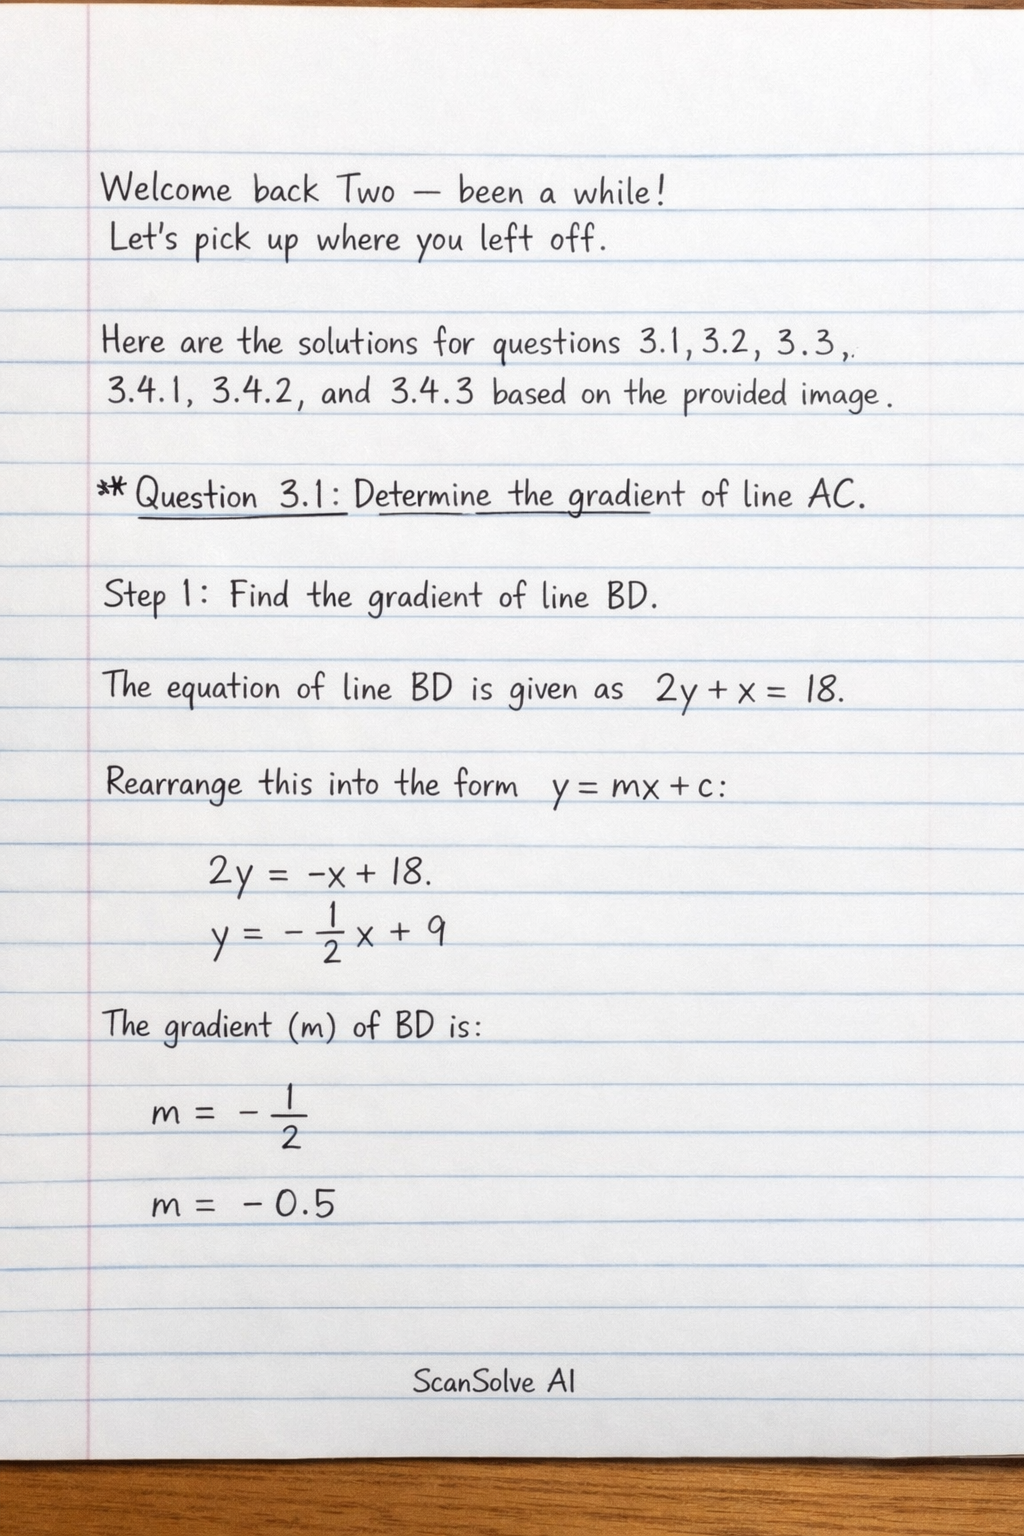 Welcome back Two — been a while!
Let's pick up where you left off.
Here are the solutions for questions 3.1, 3.2, 3.3,.
3.4.1, 3.4.2, and 3.4.3 based on the provided image.
** Question 3.1: Determine the gradient of line AC.
Step 1: Find the gradient of line BD.
The equation of line BD is given as 2y + x = 18.
Rearrange this into the form y = mx + c:
2y = -x + 18.
y = - 1/2 x + 9
The gradient (m) of BD is:
m = - 1/2
m = - 0.5
ScanSolve AI